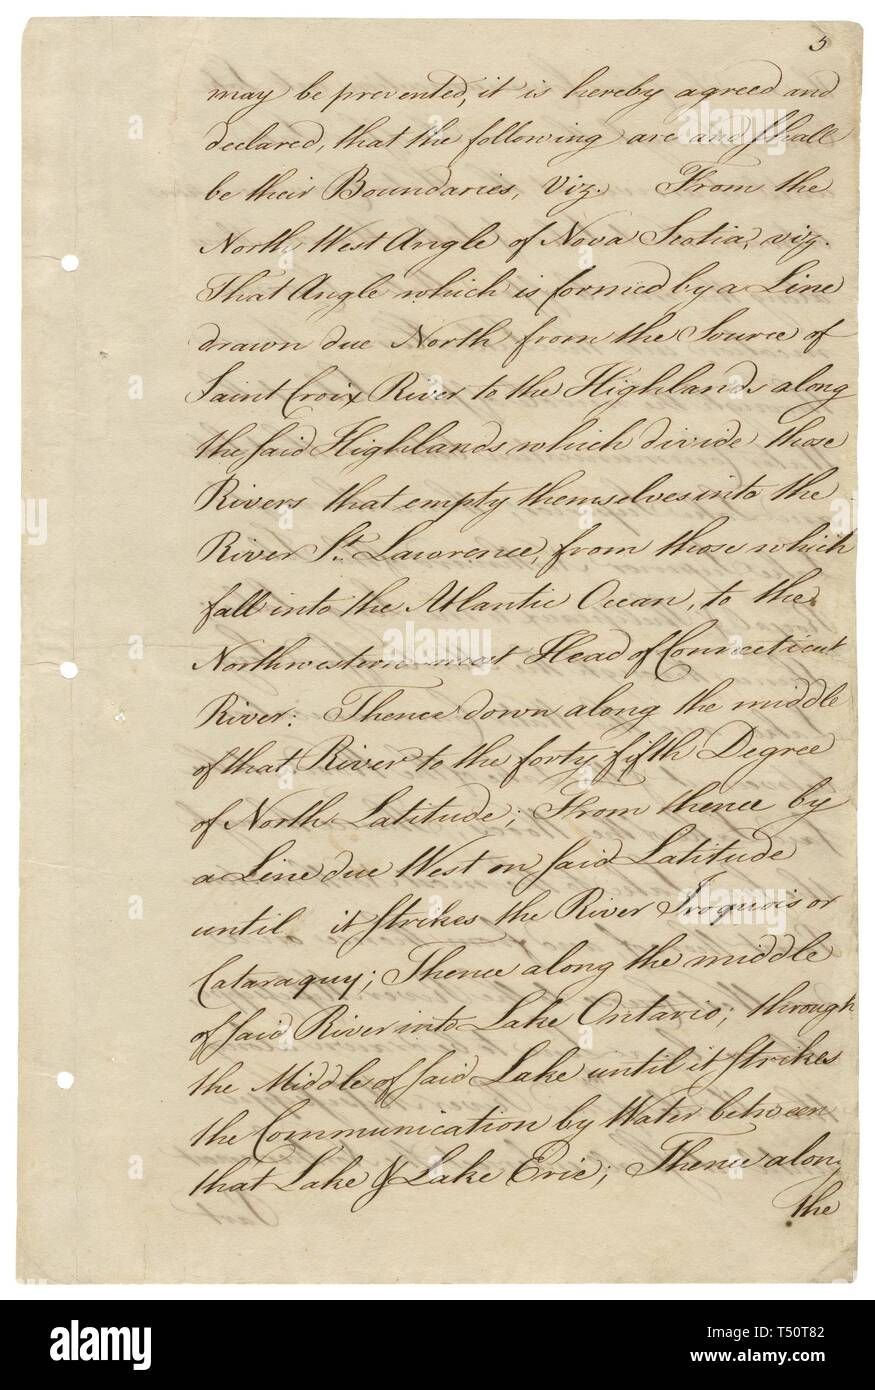 5
may be prevented, it is hereby agreed and
declared, that the following are and shall
be their Boundaries, Viz. From the
North West Angle of Nova Scotia, viz.
That Angle which is formed by a Line
drawn due North from the Source of
Saint Croix River to the Highlands along
the said Highlands which divide those
Rivers that empty themselves into the
River St. Lawrence, from those which
fall into the Atlantic Ocean, to the
Northwestern-most Head of Connecticut
River: Thence down along the middle
of that River to the forty fifth Degree
of North Latitude; From thence by
a Line due West on said Latitude
until it strikes the River Iroquois or
Cataraquy; Thence along the middle
of said River into Lake Ontario; through
the Middle of said Lake until it strikes
the Communication by Water between
that Lake & Lake Erie; Thence along
the
alamy
Image ID: T50T82
www.alamy.com